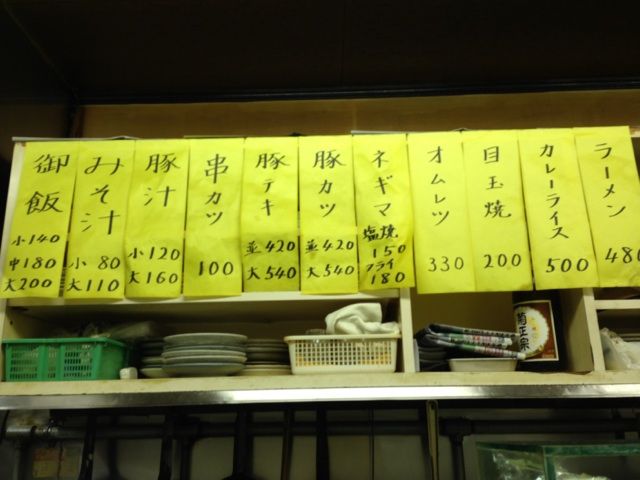 御飯
小140
中180
大200
みそ汁
小80
大110
豚汁
小120
大160
串カツ
100
豚テキ
並420
大540
豚カツ
並420
大540
ネギマ
塩焼
150
フライ
180
オムレツ
330
目玉焼
200
カレーライス
500
ラーメン
480
菊正宗